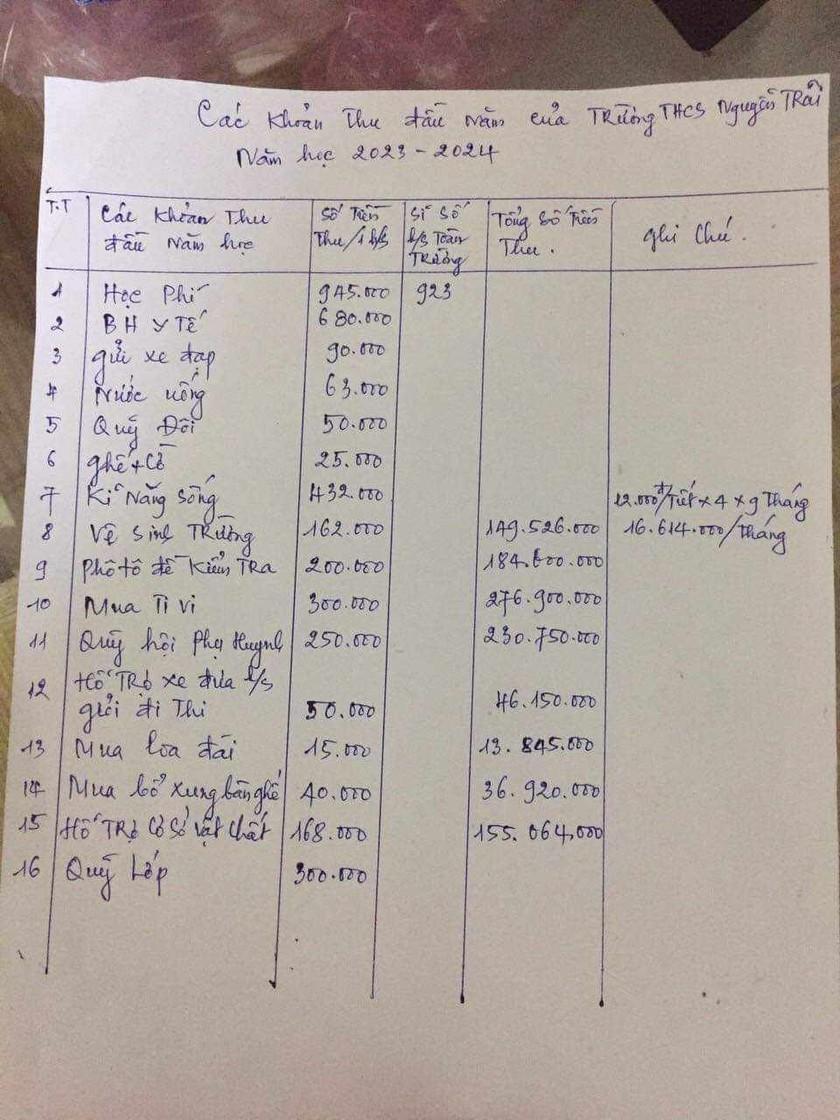 Các khoản thu đầu năm của Trường THCS Nguyễn Trãi
Năm học 2023-2024
T.T Các khoản thu đầu năm học Số tiền thu/1 h/s Sĩ số h/s toàn trường Tổng số tiền thu. Ghi chú.
1 Học phí 945.000 923
2 BH y tế 680.000
3 gửi xe đạp 90.000
4 Nước uống 63.000
5 Quỹ Đội 50.000
6 ghế+cờ 25.000
7 Kĩ năng sống 432.000 12.000đ/tiết x 4 x 9 tháng
8 Vệ sinh trường 162.000 149.526.000 16.614.000/tháng
9 phô tô đề kiểm tra 200.000 184.600.000
10 Mua Ti vi 300.000 276.900.000
11 Quỹ hội phụ huynh 250.000 230.750.000
12 Hỗ trợ xe đưa h/s
giỏi đi thi 50.000 46.150.000
13 Mua loa đài 15.000 13.845.000
14 Mua bổ xung bàn ghế 40.000 36.920.000
15 Hỗ trợ cơ sở vật chất 168.000 155.064,000
16 Quỹ lớp 300.000